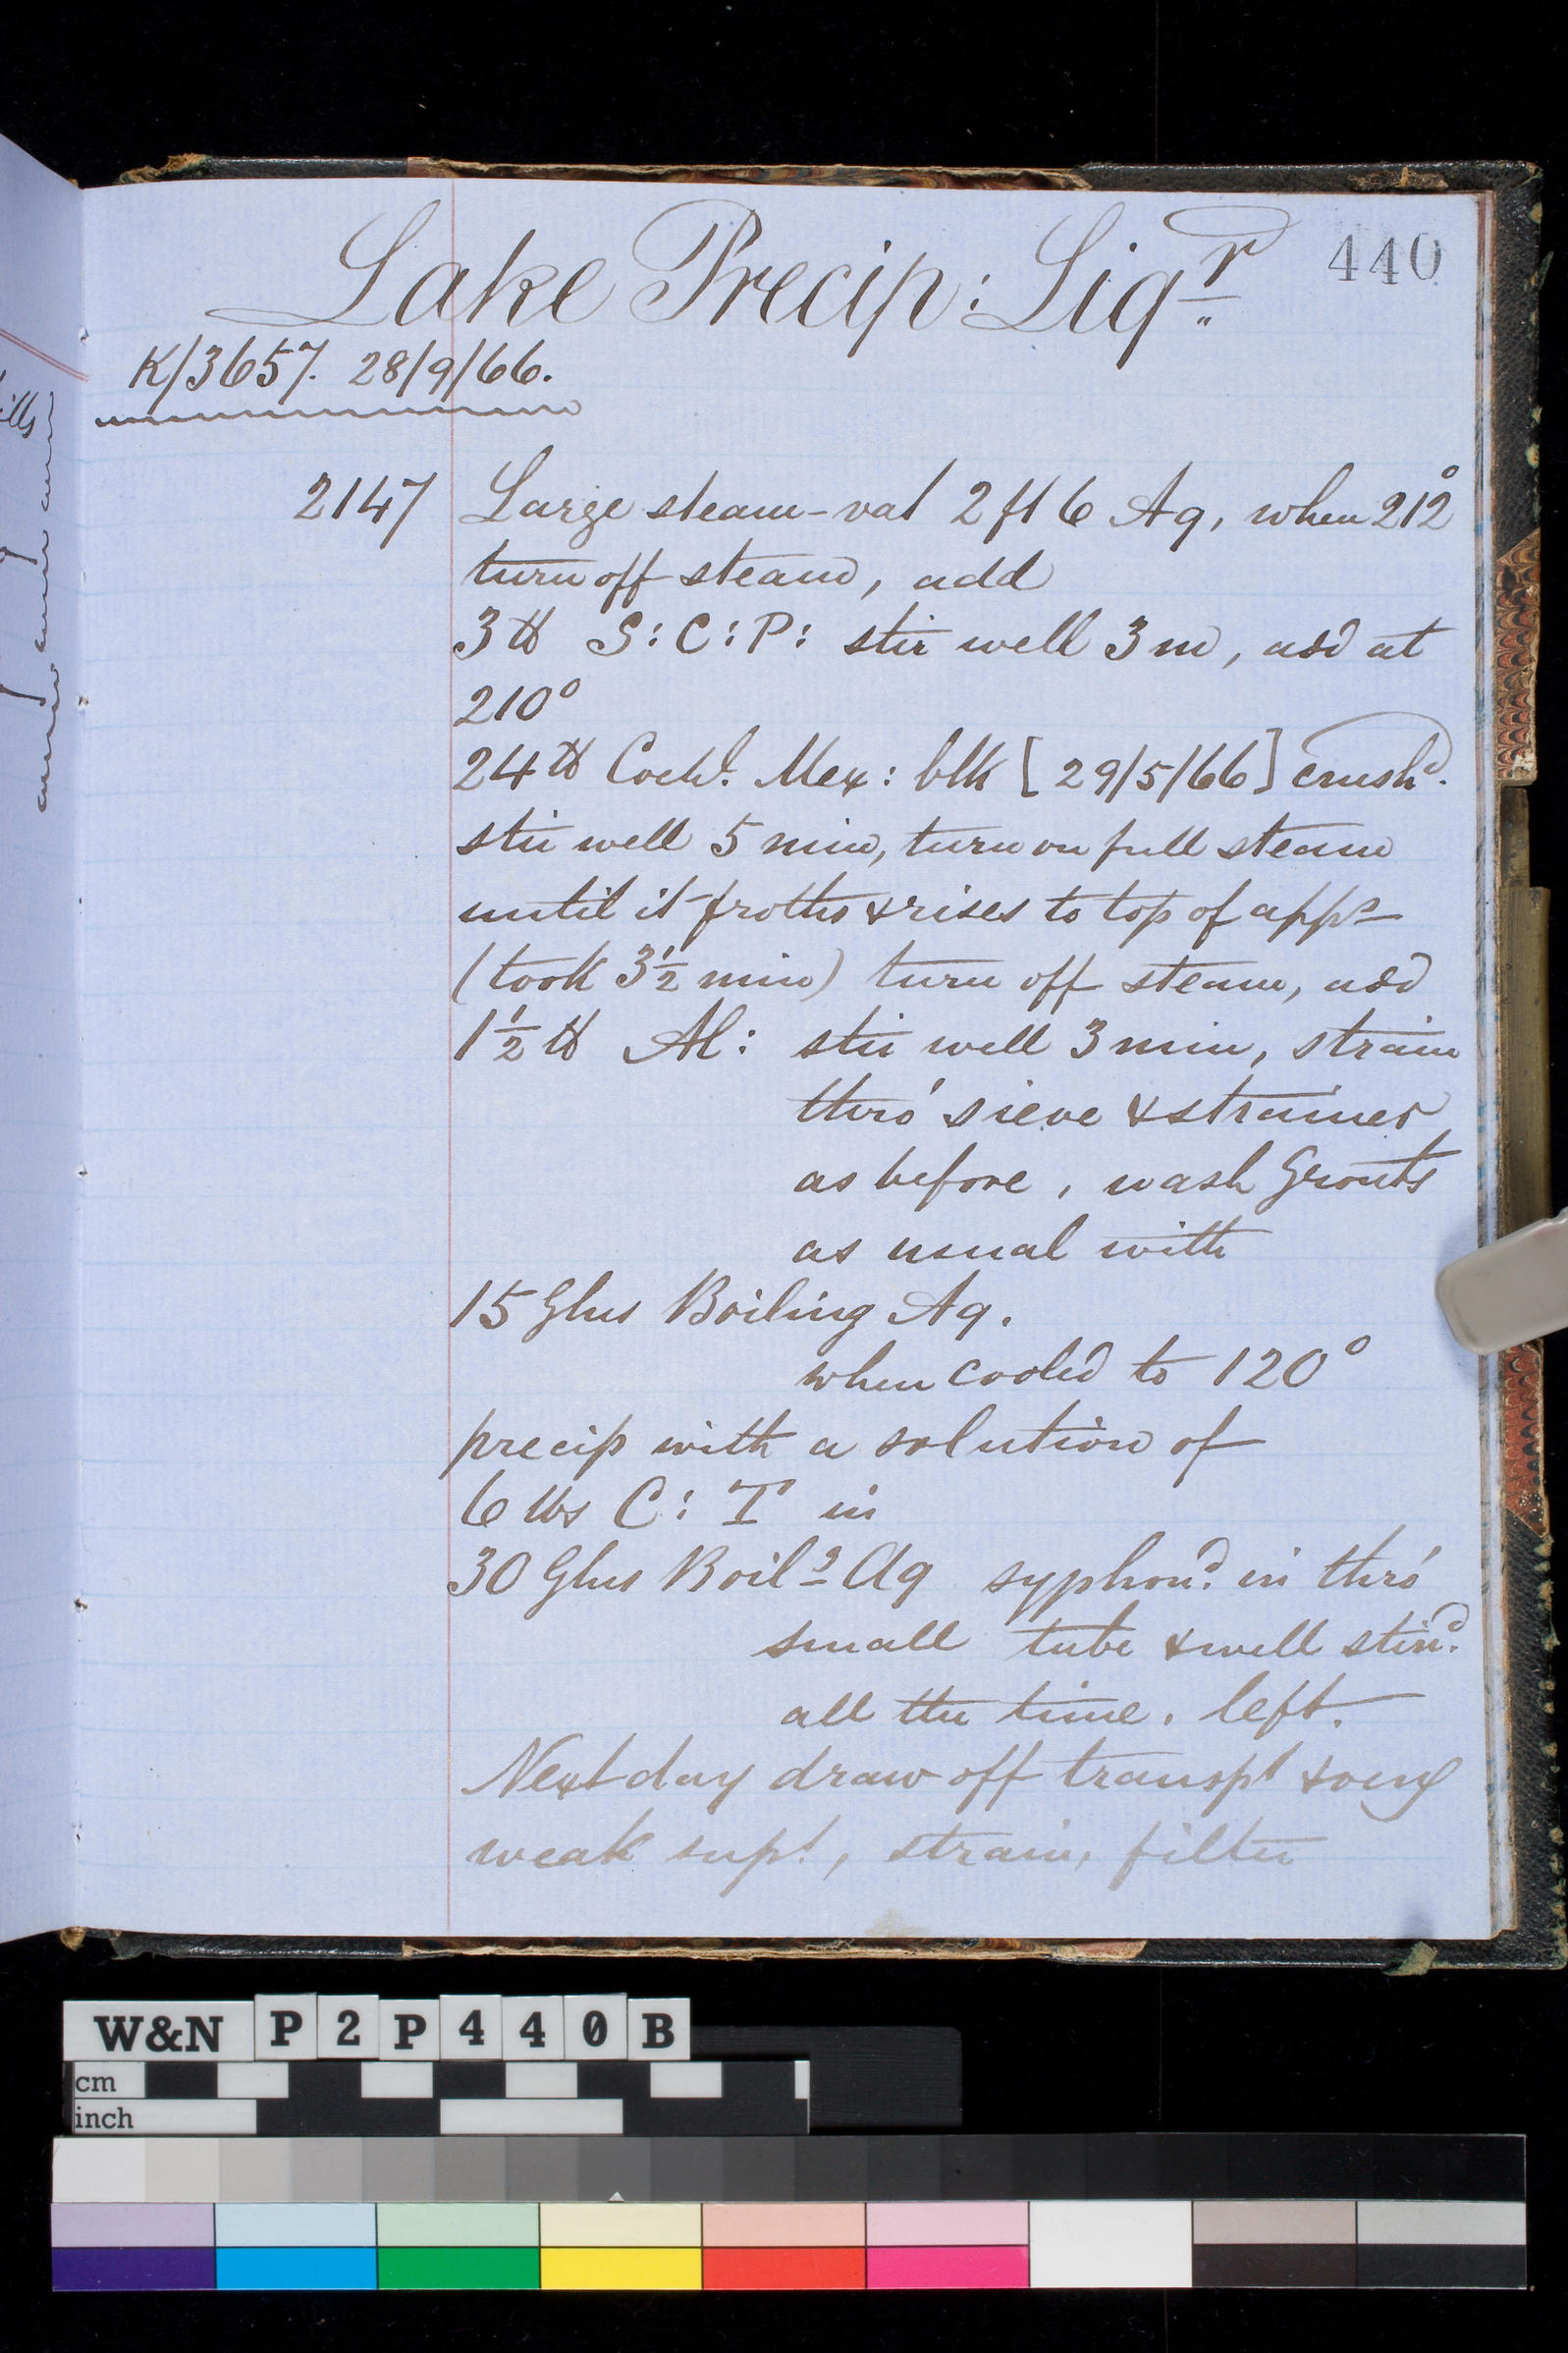 Lake Precip: Liqr
440
K/3657. 28/9/66.
2147 Large steam-vat 2 ft 6 Aq, when 212°
turn off steam, add
3 lb S: C: P: stir well 3 m, add at
210°
24 lb Cochl. Mex: blk [29/5/66] crushd.
stir well 5 min, turn on full steam
until it froths & rises to top of apps
(took 3½ min) turn off steam, add
1½ lb Al: stir well 3 min, strain
thro' sieve & strainer
as before, wash Grouts
as usual with
15 Glns Boiling Aq.
when cooled to 120°
precip with a solution of
6 lbs C: T in
30 Glns Boilg Aq syphond. in thro'
small tube & well stirrd.
all the time. left.
Next day draw off transpt & very
weak supt, strain, filter
ills
W&N P2P440B
cm
inch